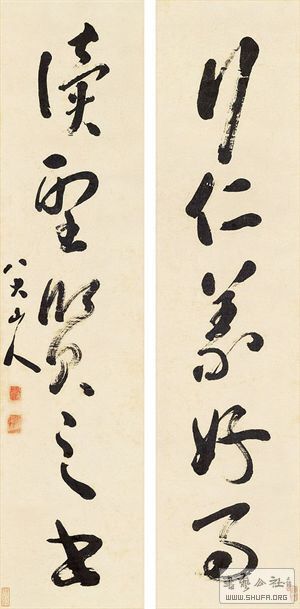 行仁義好事
讀聖賢之書
八大山人
書藝公社
WWW.SHUFA.ORG